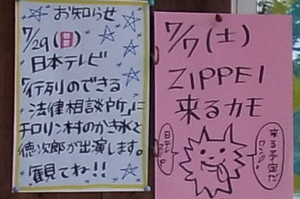 お知らせ
7/29(日)
日本テレビ
「行列のできる
法律相談所」に
チロリン村のかき氷と
徳次郎が出演します。
観てね!!
7/7(土)
ZIPPEI
来るカモ
来る予定で